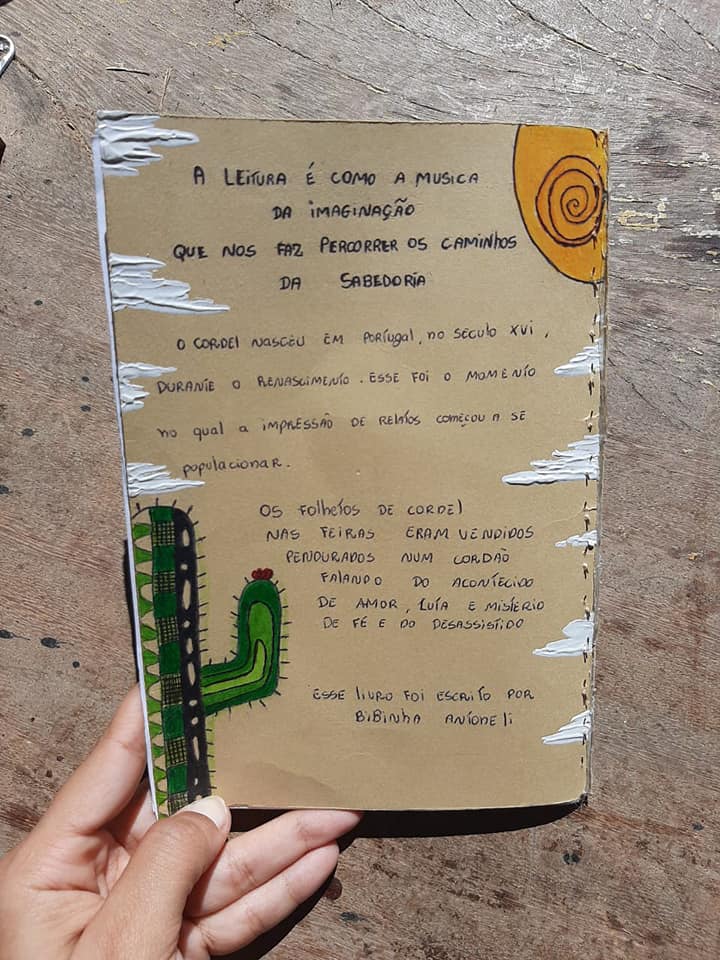 A LEITURA É COMO A MUSICA
DA IMAGINAÇÃO
QUE NOS FAZ PERCORRER OS CAMINHOS
DA SABEDORIA
O CORDEL NASCEU EM PORTUGAL, NO SÉCULO XVI,
DURANTE O RENASCIMENTO. ESSE FOI O MOMENTO
NO QUAL A IMPRESSÃO DE RELATOS COMEÇOU A SE
POPULACIONAR.
OS FOLHETOS DE CORDEL
NAS FEIRAS ERAM VENDIDOS
PENDURADOS NUM CORDÃO
FALANDO DO ACONTECIDO
DE AMOR, LUTA E MISTÉRIO
DE FÉ E DO DESASSISTIDO
ESSE LIVRO FOI ESCRITO POR
BIBINHA ANTONELI